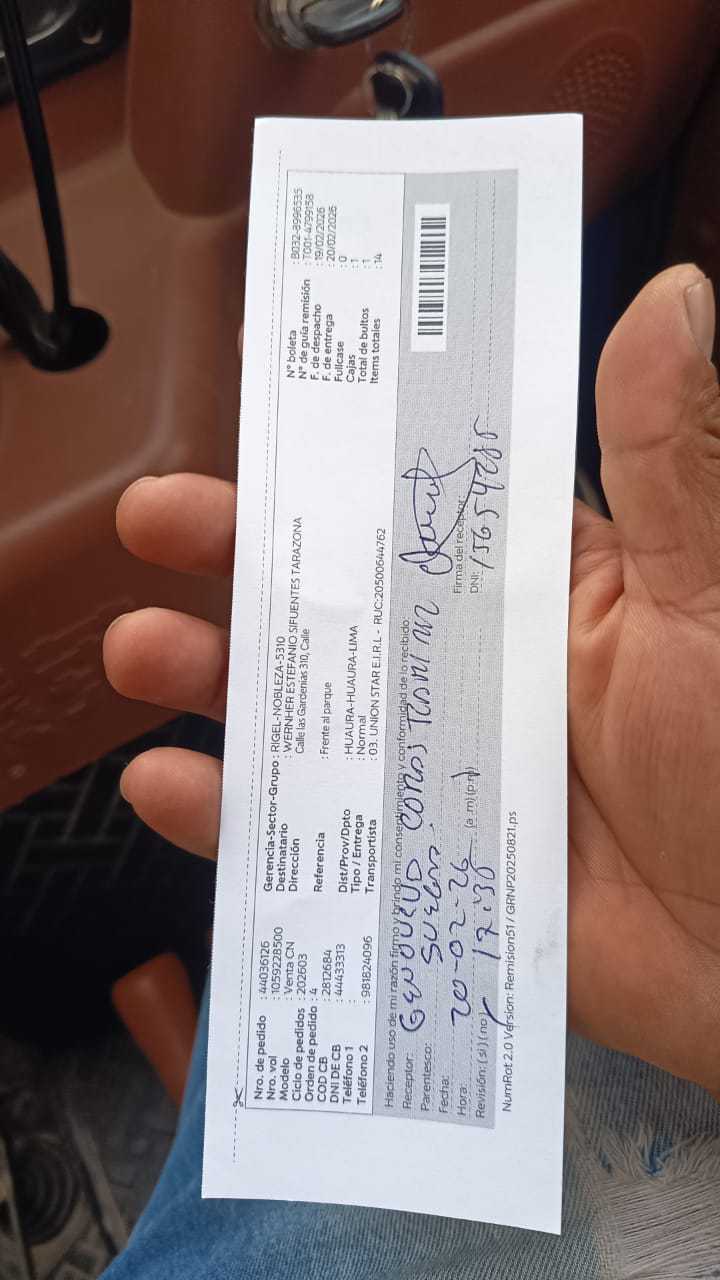 Nro. de pedido : 44036126
Nro. vol : 1059228500
Modelo : Venta CN
Ciclo de pedidos : 202603
Orden de pedido : 4
COD CB : 2812684
DNI DE CB : 44433313
Teléfono 1 :
Teléfono 2 : 981824096
Gerencia-Sector-Grupo : RIGEL-NOBLEZA-5310
Destinatario : WERNHER ESTEFANIO SIFUENTES TARAZONA
Dirección Calle las Gardenias 310, Calle
Referencia : Frente al parque
Dist/Prov/Dpto : HUAURA-HUAURA-LIMA
Tipo / Entrega : Normal
Transportista : 03. UNION STAR E.I.R.L - RUC:20500644762
N° boleta : B032-8996535
N° de guía remisión : T001-4799158
F. de despacho : 19/02/2026
F. de entrega : 20/02/2026
Fullcase : 0
Cajas : 1
Total de bultos : 1
Items totales : 14
Haciendo uso de mi razón firmo y brindo mi consentimiento y conformidad de lo recibido:
Receptor:
Parentesco: suegra.
Fecha: 20-02-26
Hora: 17:30 (a .m) (p.m)
Revisión: ( si ) ( no )
Firma del receptor:
DNI:
NumRot 2.0 Version: Remision51 / GRNP20250821.ps